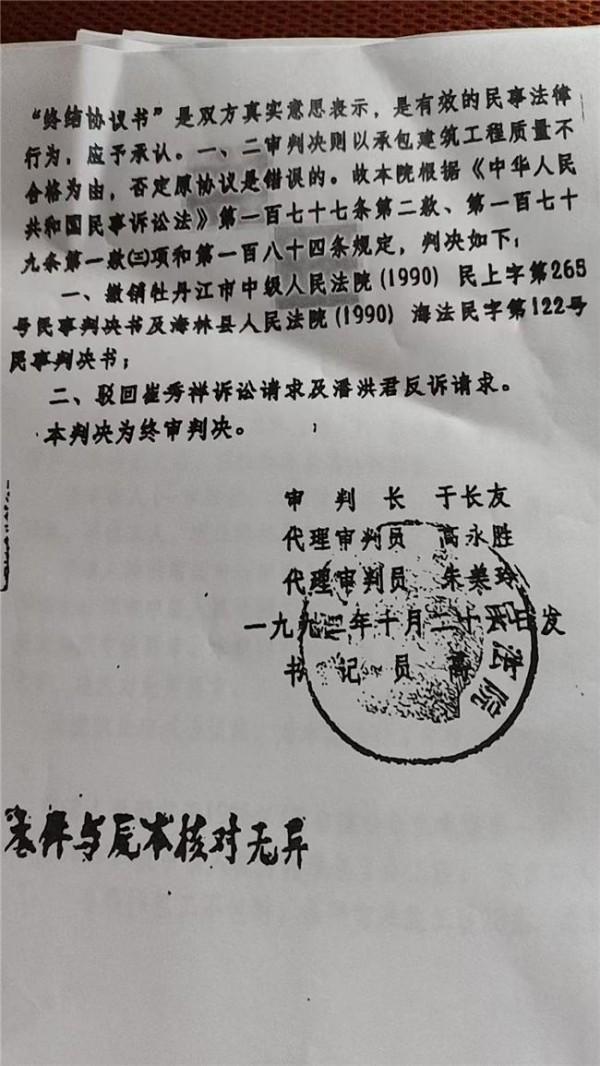 “终结协议书”是双方真实意思表示，是有效的民事法律
行为，应予承认。一、二审判决则以承包建筑工程质量不
合格为由，否定原协议是错误的。故本院根据《中华人民
共和国民事诉讼法》第一百七十七条第二款、第一百七十
九条第一款㈢项和第一百八十四条规定，判决如下：
一、撤销牡丹江市中级人民法院(1990)民上字第265
号民事判决书及海林县人民法院(1990)海法民字第122号
民事判决书；
二、驳回崔秀祥诉讼请求及潘洪君反诉请求。
本判决为终审判决。
审判长 于长友
代理审判员 高永胜
代理审判员 朱美玲
一九九 年十月二十 日发
书记员
法院
本件与原本核对无异